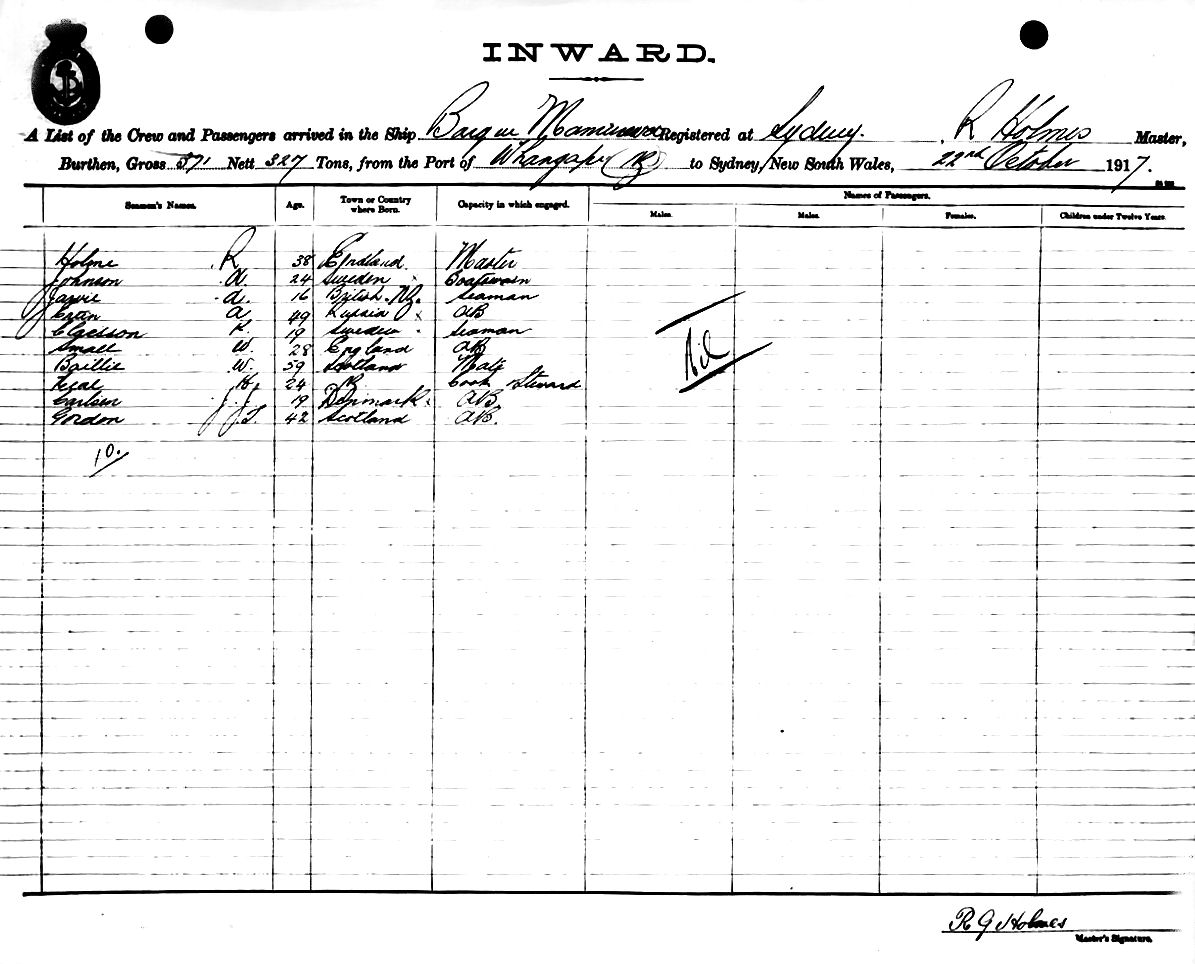 INWARD.
A List of the Crew and Passengers arrived in the Ship Barque Registered at Sydney. R Holmes Master,
Burthen, Gross 371 Nett 327 Tons, from the Port of Whangape (NZ) to Sydney, New South Wales, 22nd October 1917.
Seamen's Names. Age. Town or Country where Born. Capacity in which engaged. Names of Passengers.
Males. Males. Females. Children under Twelve Years.
Holme R 38 England Master
Johnson A. 24 Sweden Boatswain
Jarvie A. 16 British. NZ. Seaman
A 49 Russia AB
Claesson K. 19 Sweden Seaman
Small W 28 England AB
Baillie W. 59 Scotland Mate
H. 24 Cook Steward
Carlsen J. 19 Denmark AB
Gordon J.S. 42 Scotland AB.
Nil
10.
R G Holmes
Master's Signature.